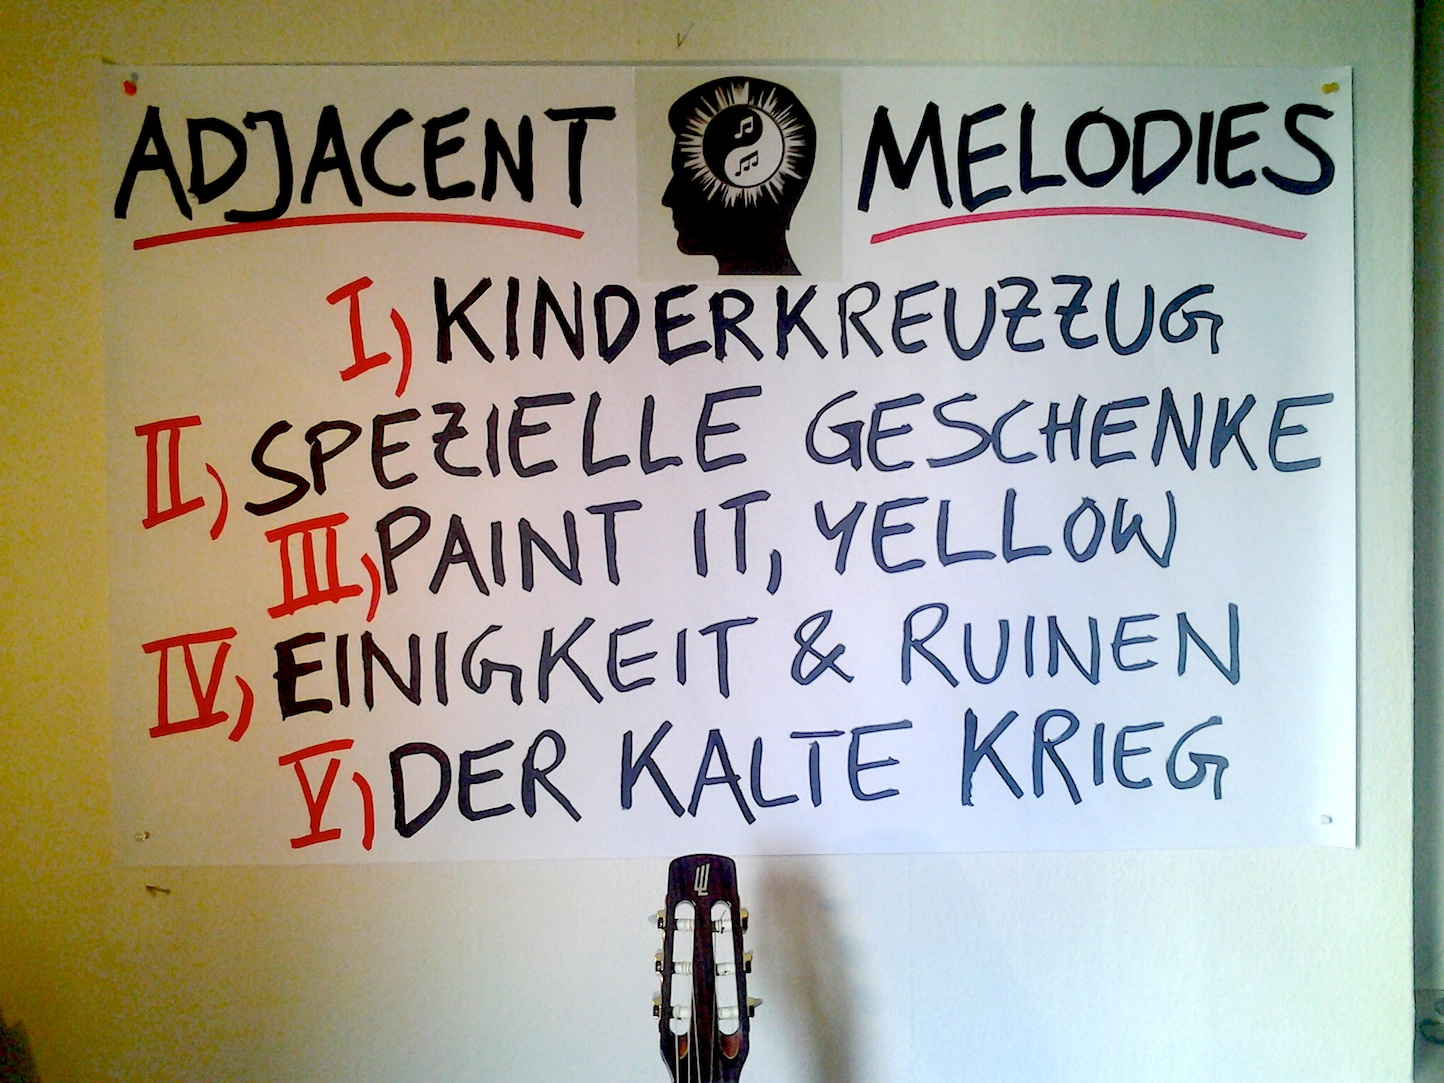 ADJACENT MELODIES
I) KINDERKREUZZUG
II) SPEZIELLE GESCHENKE
III) PAINT IT, YELLOW
IV) EINIGKEIT & RUINEN
V) DER KALTE KRIEG